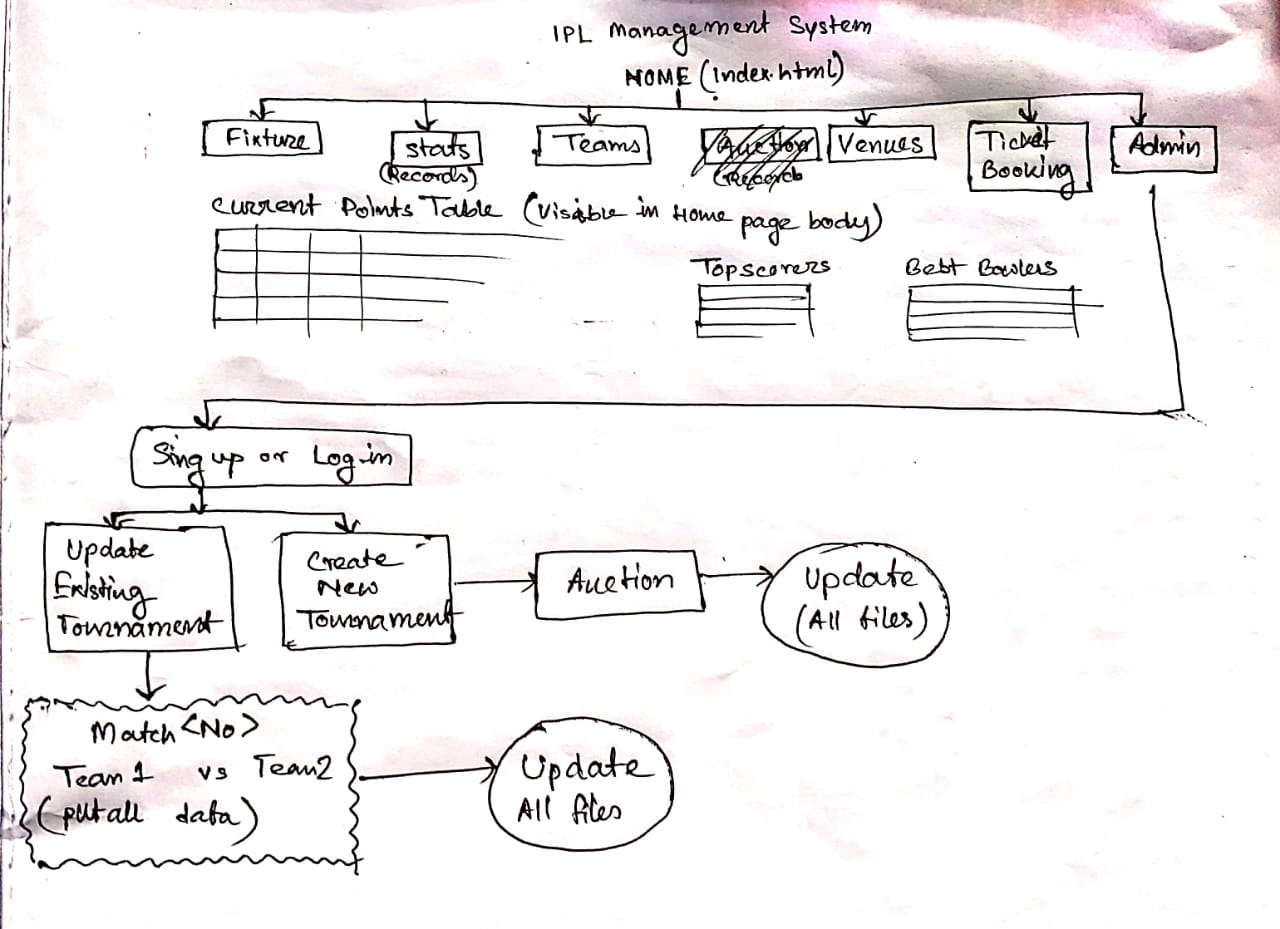 IPL Management System
HOME (Index.html)
Fixture
Stats
(Records)
Teams
Auction
(Record
Venues
Ticket
Booking
Admin
Current Points Table (Visible in Home page body)
Topscorers
Best Bowlers
Sing up or Log-in
Update
Existing
Tournament
Create
New
Tournament
Auction
Update
(All files)
Match <No>
Team 1 vs Team2
(put all data)
Update
All files